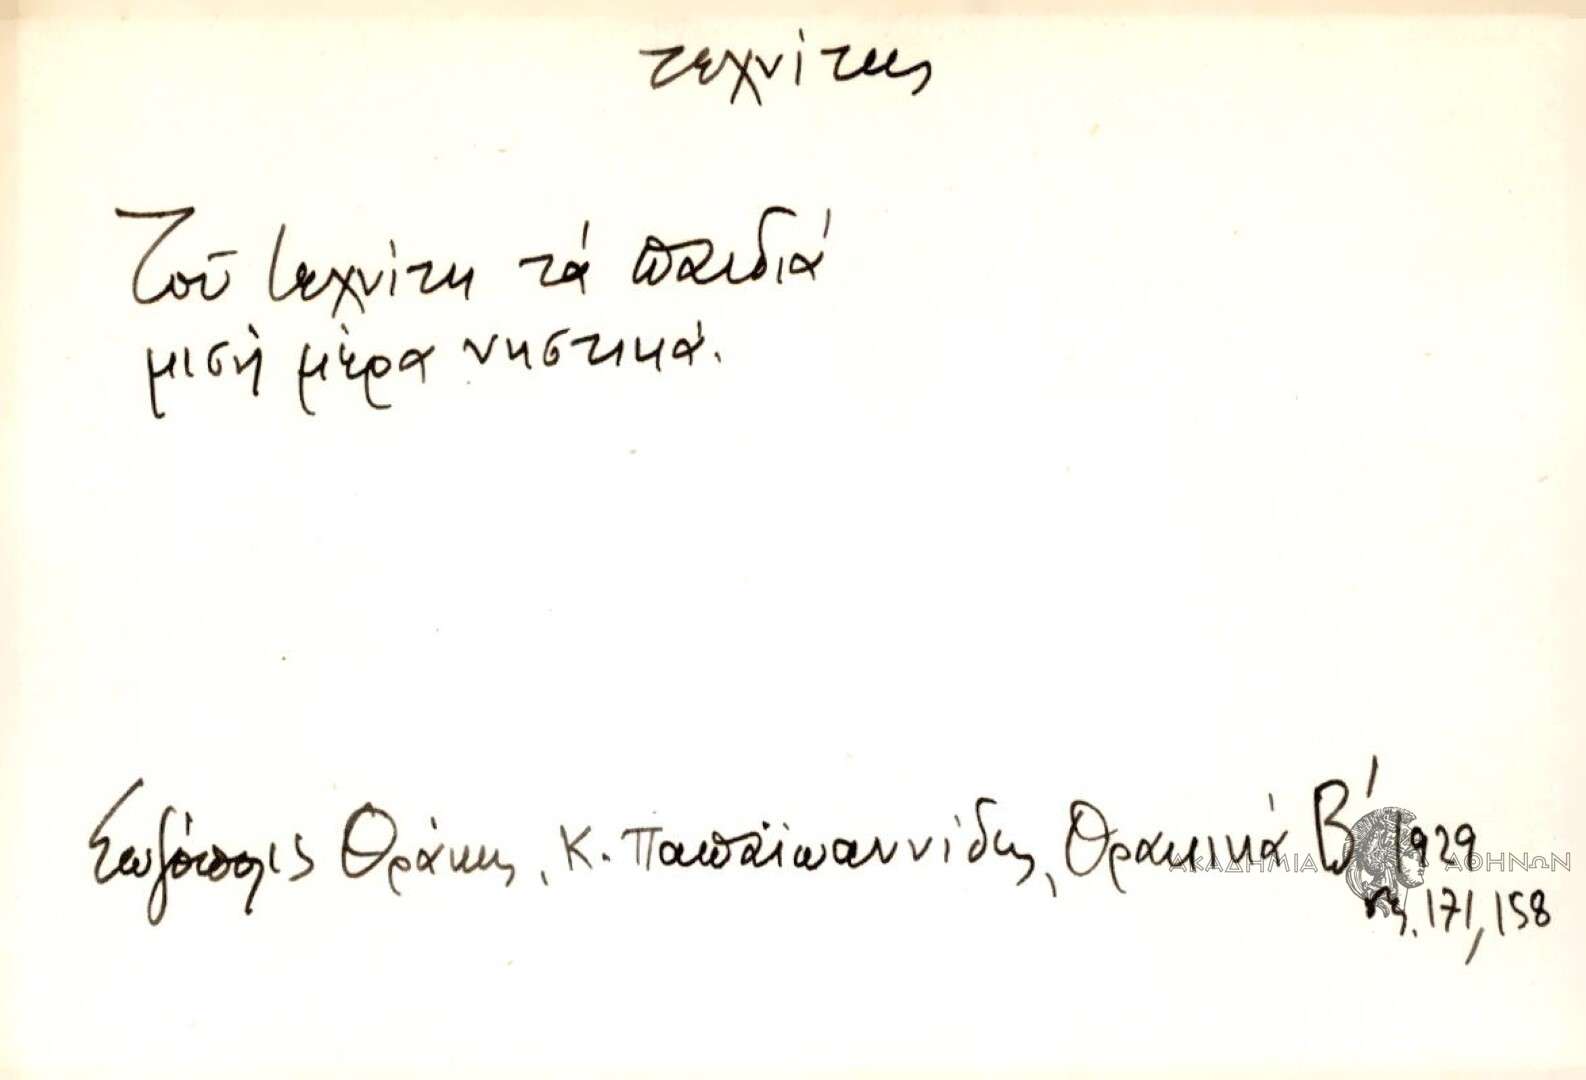 τεχνίτης
Τοῦ τεχνίτη τά παιδιά
μισή μέρα νηστικά.
Σωζόπολις Θράκης, Κ. Παπαϊωαννίδης, Θρακικά Β΄ 1929
ΑΚΑΔΗΜΙΑ ΑΘΗΝΩΝ
σ. 171, 158